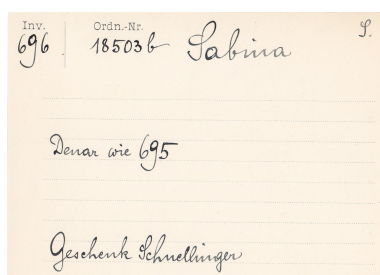 Inv. Ordn.-Nr. S.
696 18503b Sabina
Denar wie 695
Geschenk Schnellinger